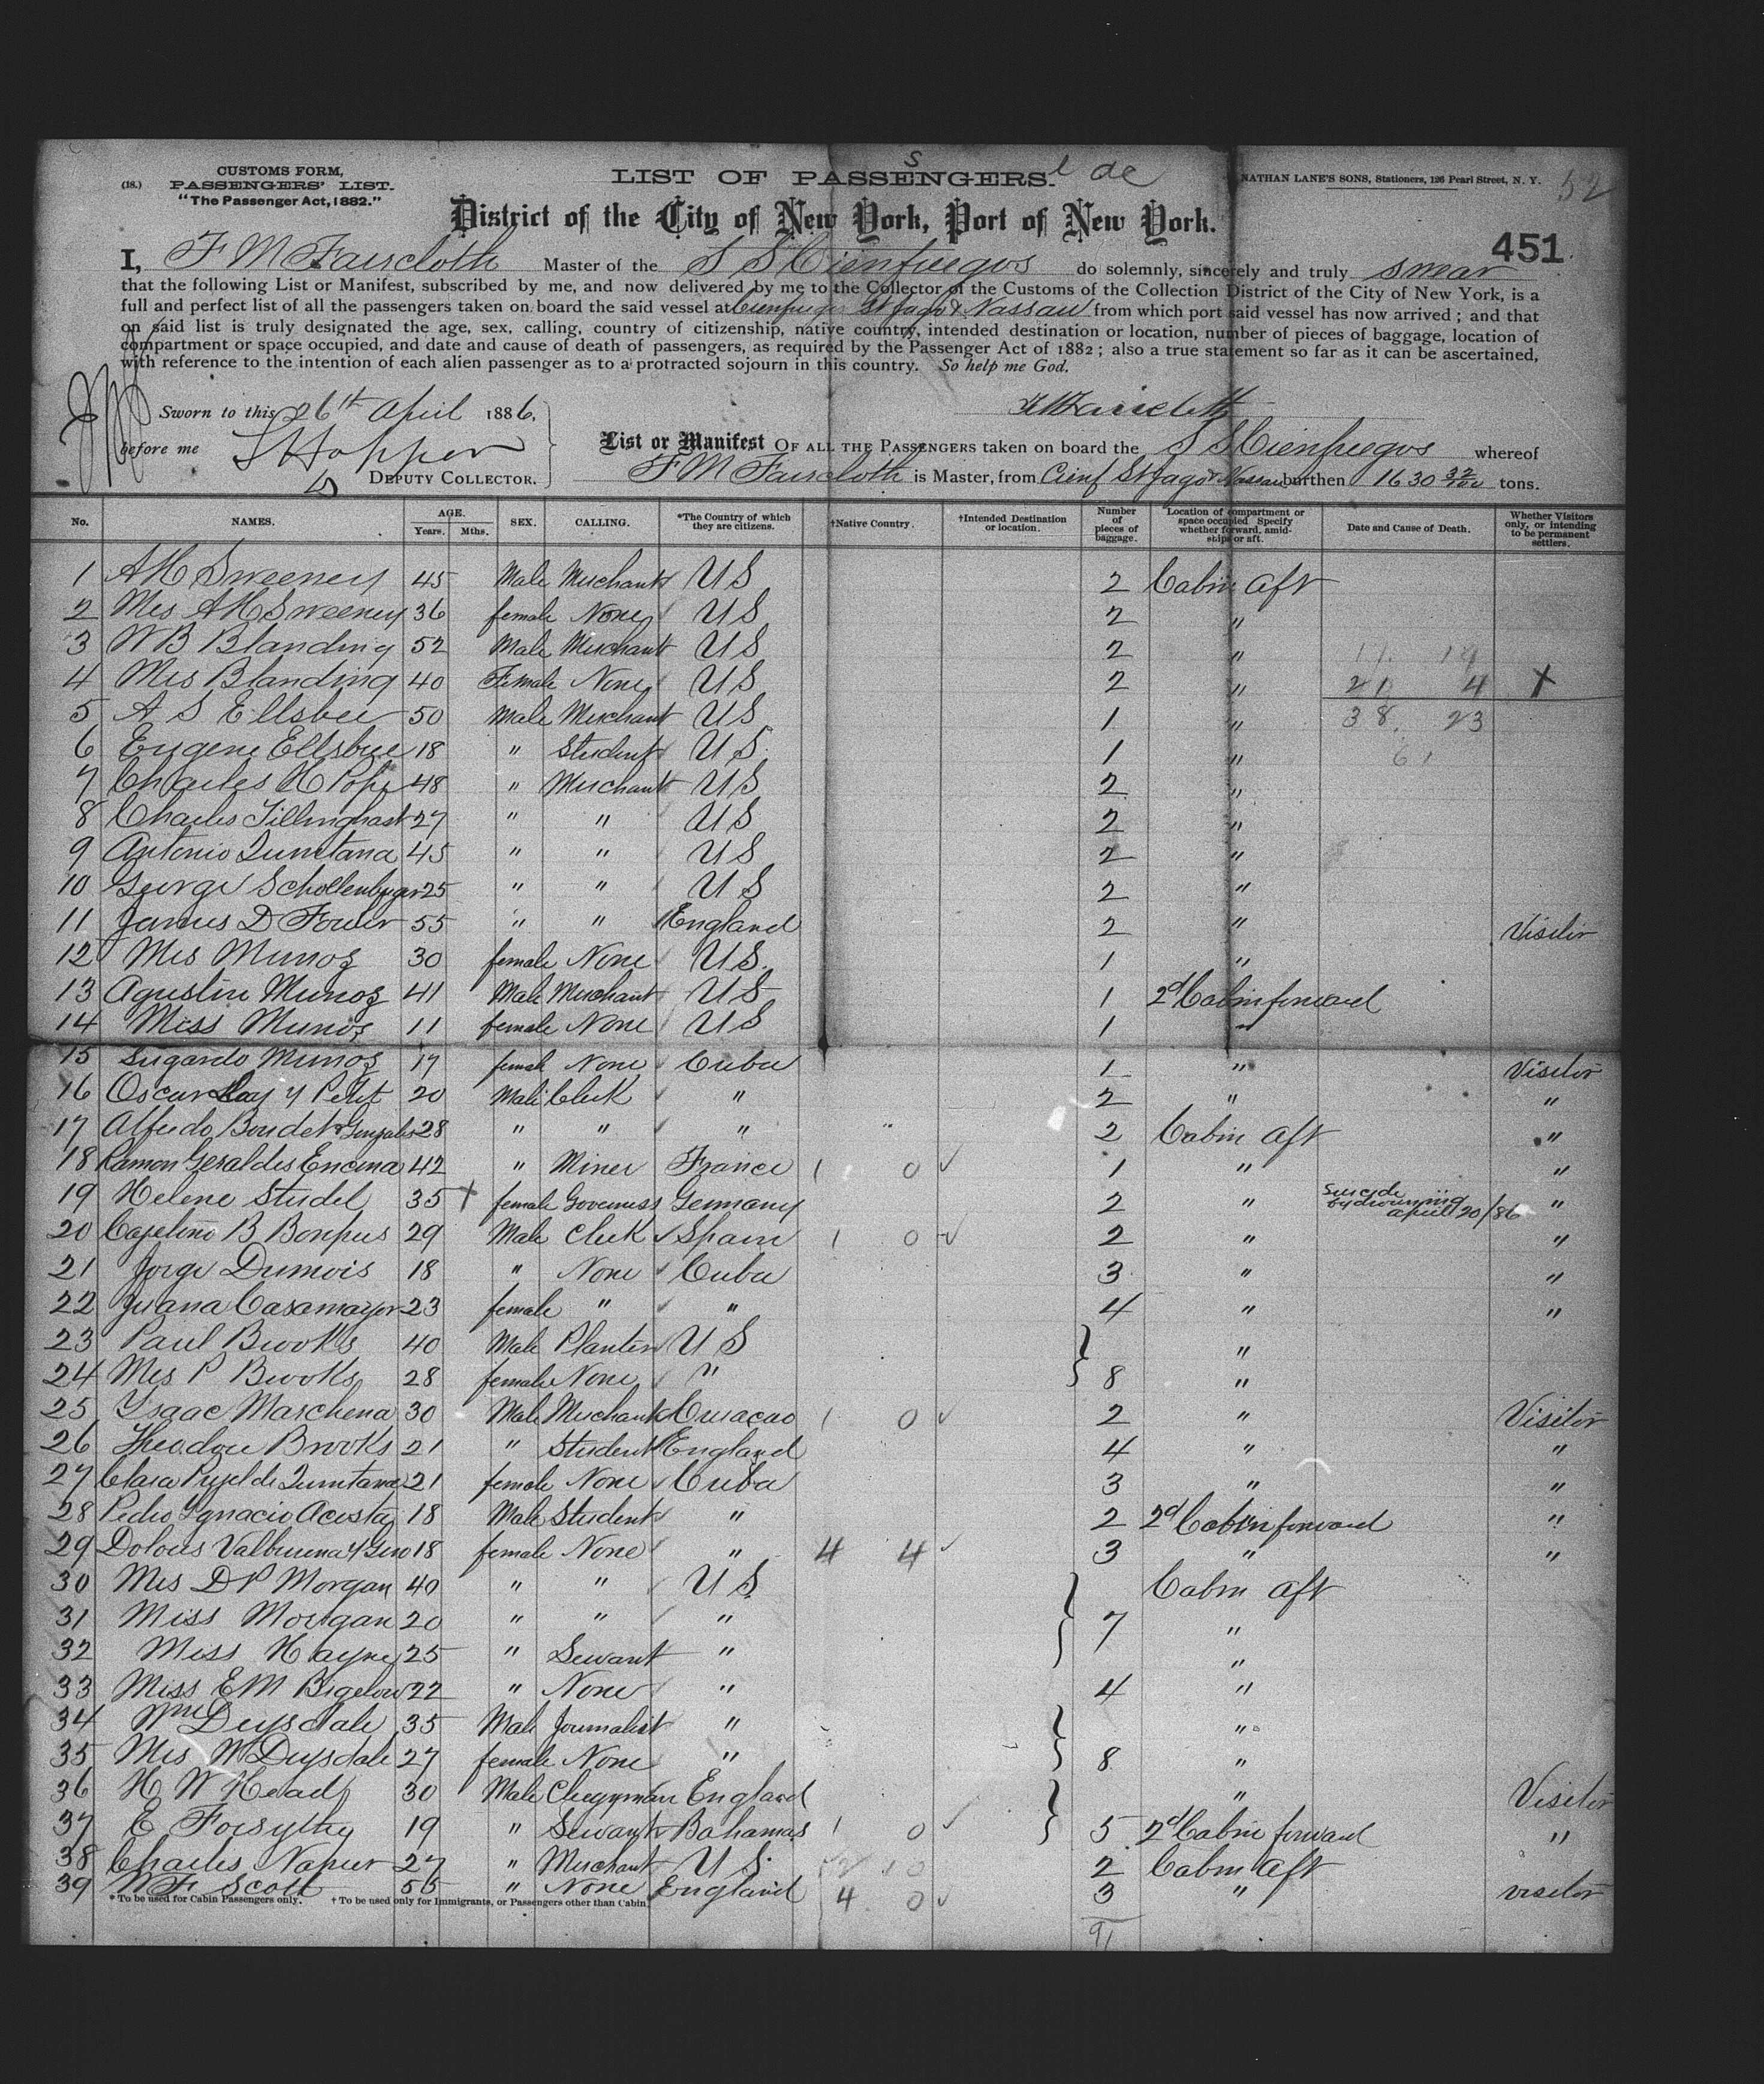 (18.)
CUSTOMS FORM,
PASSENGERS' LIST.
"The Passenger Act, 1882."
LIST OF PASSENGERS.
NATHAN LANE'S SONS, Stationers, 126 Pearl Street, N. Y.
52
District of the City of New York, Port of New York.
451
I, F M Faircloth Master of the S S Cienfuegos do solemnly, sincerely and truly swear
that the following List or Manifest, subscribed by me, and now delivered by me to the Collector of the Customs of the Collection District of the City of New York, is a
full and perfect list of all the passengers taken on board the said vessel at Cienfuegos St Jago & Nassau from which port said vessel has now arrived; and that
on said list is truly designated the age, sex, calling, country of citizenship, native country, intended destination or location, number of pieces of baggage, location of
compartment or space occupied, and date and cause of death of passengers, as required by the Passenger Act of 1882; also a true statement so far as it can be ascertained,
with reference to the intention of each alien passenger as to a protracted sojourn in this country. So help me God.
Sworn to this 26th April 1886,
F M Faircloth
before me
DEPUTY COLLECTOR.
List or Manifest OF ALL THE PASSENGERS taken on board the S S Cienfuegos whereof
F M Faircloth is Master, from Cienf St Jago & Nassau burthen 1630 32/100 tons.
No. NAMES. AGE. Years. Mths. SEX. CALLING. *The Country of which they are citizens. †Native Country. †Intended Destination or location. Number of pieces of baggage. Location of compartment or space occupied Specify whether forward, amidships or aft. Date and Cause of Death. Whether Visitors only, or intending to be permanent settlers.
1 A H Sweeney 45 Male Merchant U S 2 Cabin Aft
2 Mrs A H Sweeney 36 female None U S 2 "
3 W B Blanding 52 Male Merchant U S 2 " 17 19
4 Mrs Blanding 40 Female None U S 2 " 21 4 X
5 A S Ellsbee 50 Male Merchant U S 1 " 38 23
6 Eugene Ellsbee 18 " Student U S 1 " 61
7 Charles H Pope 48 " Merchant U S 2 "
8 Charles Tillinghast 27 " " U S 2 "
9 Antonio Quintana 45 " " U S 2 "
10 George Schollenberger 25 " " U S 2 "
11 James D Fowler 55 " " England 2 " Visitor
12 Mrs Munoz 30 female None U S 1 "
13 Agustin Munoz 41 Male Merchant U S 1 2d Cabin forward
14 Miss Munoz 11 female None U S 1 "
15 Munoz 17 female None Cuba 1 " Visitor
16 Oscar y Petit 20 Male Clerk " 2 " "
17 Alfredo Boudet Gonzales 28 " " " 2 Cabin Aft "
18 Ramon Geraldes Encina 42 " Miner France 1 0 1 " "
19 Helene Steidel 35 female Governess Germany 2 " Suicide by drowning april 20/86 "
20 B Bonpus 29 Male Clerk Spain 1 0 2 " "
21 Jorge Dumois 18 " None Cuba 3 " "
22 Juana Casamayor 23 female " " 4 " "
23 Paul Brooks 40 Male Planter U S "
24 Mrs P Brooks 28 female None " 8 "
25 Ysaac Marchena 30 Male Merchant Curaçao 1 0 2 " Visitor
26 Theodore Brooks 21 " Student England 4 " "
27 Clara Pujol de Quintana 21 female None Cuba 3 " "
28 Pedro Ygnacio Acosta 18 Male Student " 2 2d Cabin forward "
29 Dolores Valbuena y 18 female None " 4 4 3 " "
30 Mrs D P Morgan 40 " " U S Cabin Aft
31 Miss Morgan 20 " " " 7 "
32 Miss Hayne 25 " Servant " "
33 Miss E M Bigelow 22 " None " 4 "
34 Wm Drysdale 35 Male Journalist " "
35 Mrs W Drysdale 27 female None " 8 "
36 H W Head 30 Male Clergyman England " Visitor
37 E Forsythe 19 " Servant Bahamas 1 0 5 2d Cabin forward "
38 Charles Napier 27 " Merchant U S 2 Cabin Aft
39 W F Scott 55 " None England 4 0 3 " visitor
* To be used for Cabin Passengers only. † To be used only for Immigrants, or Passengers other than Cabin.
91